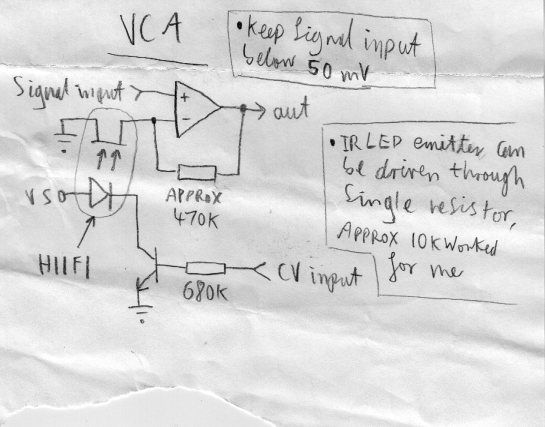 VCA
• Keep Signal input
below 50 mV
Signal input
+
-
out
APPROX
470K
V50
H11F1
680K
CV input
• IR LED emitter can
be driven through
Single resistor,
APPROX 10K Worked
for me